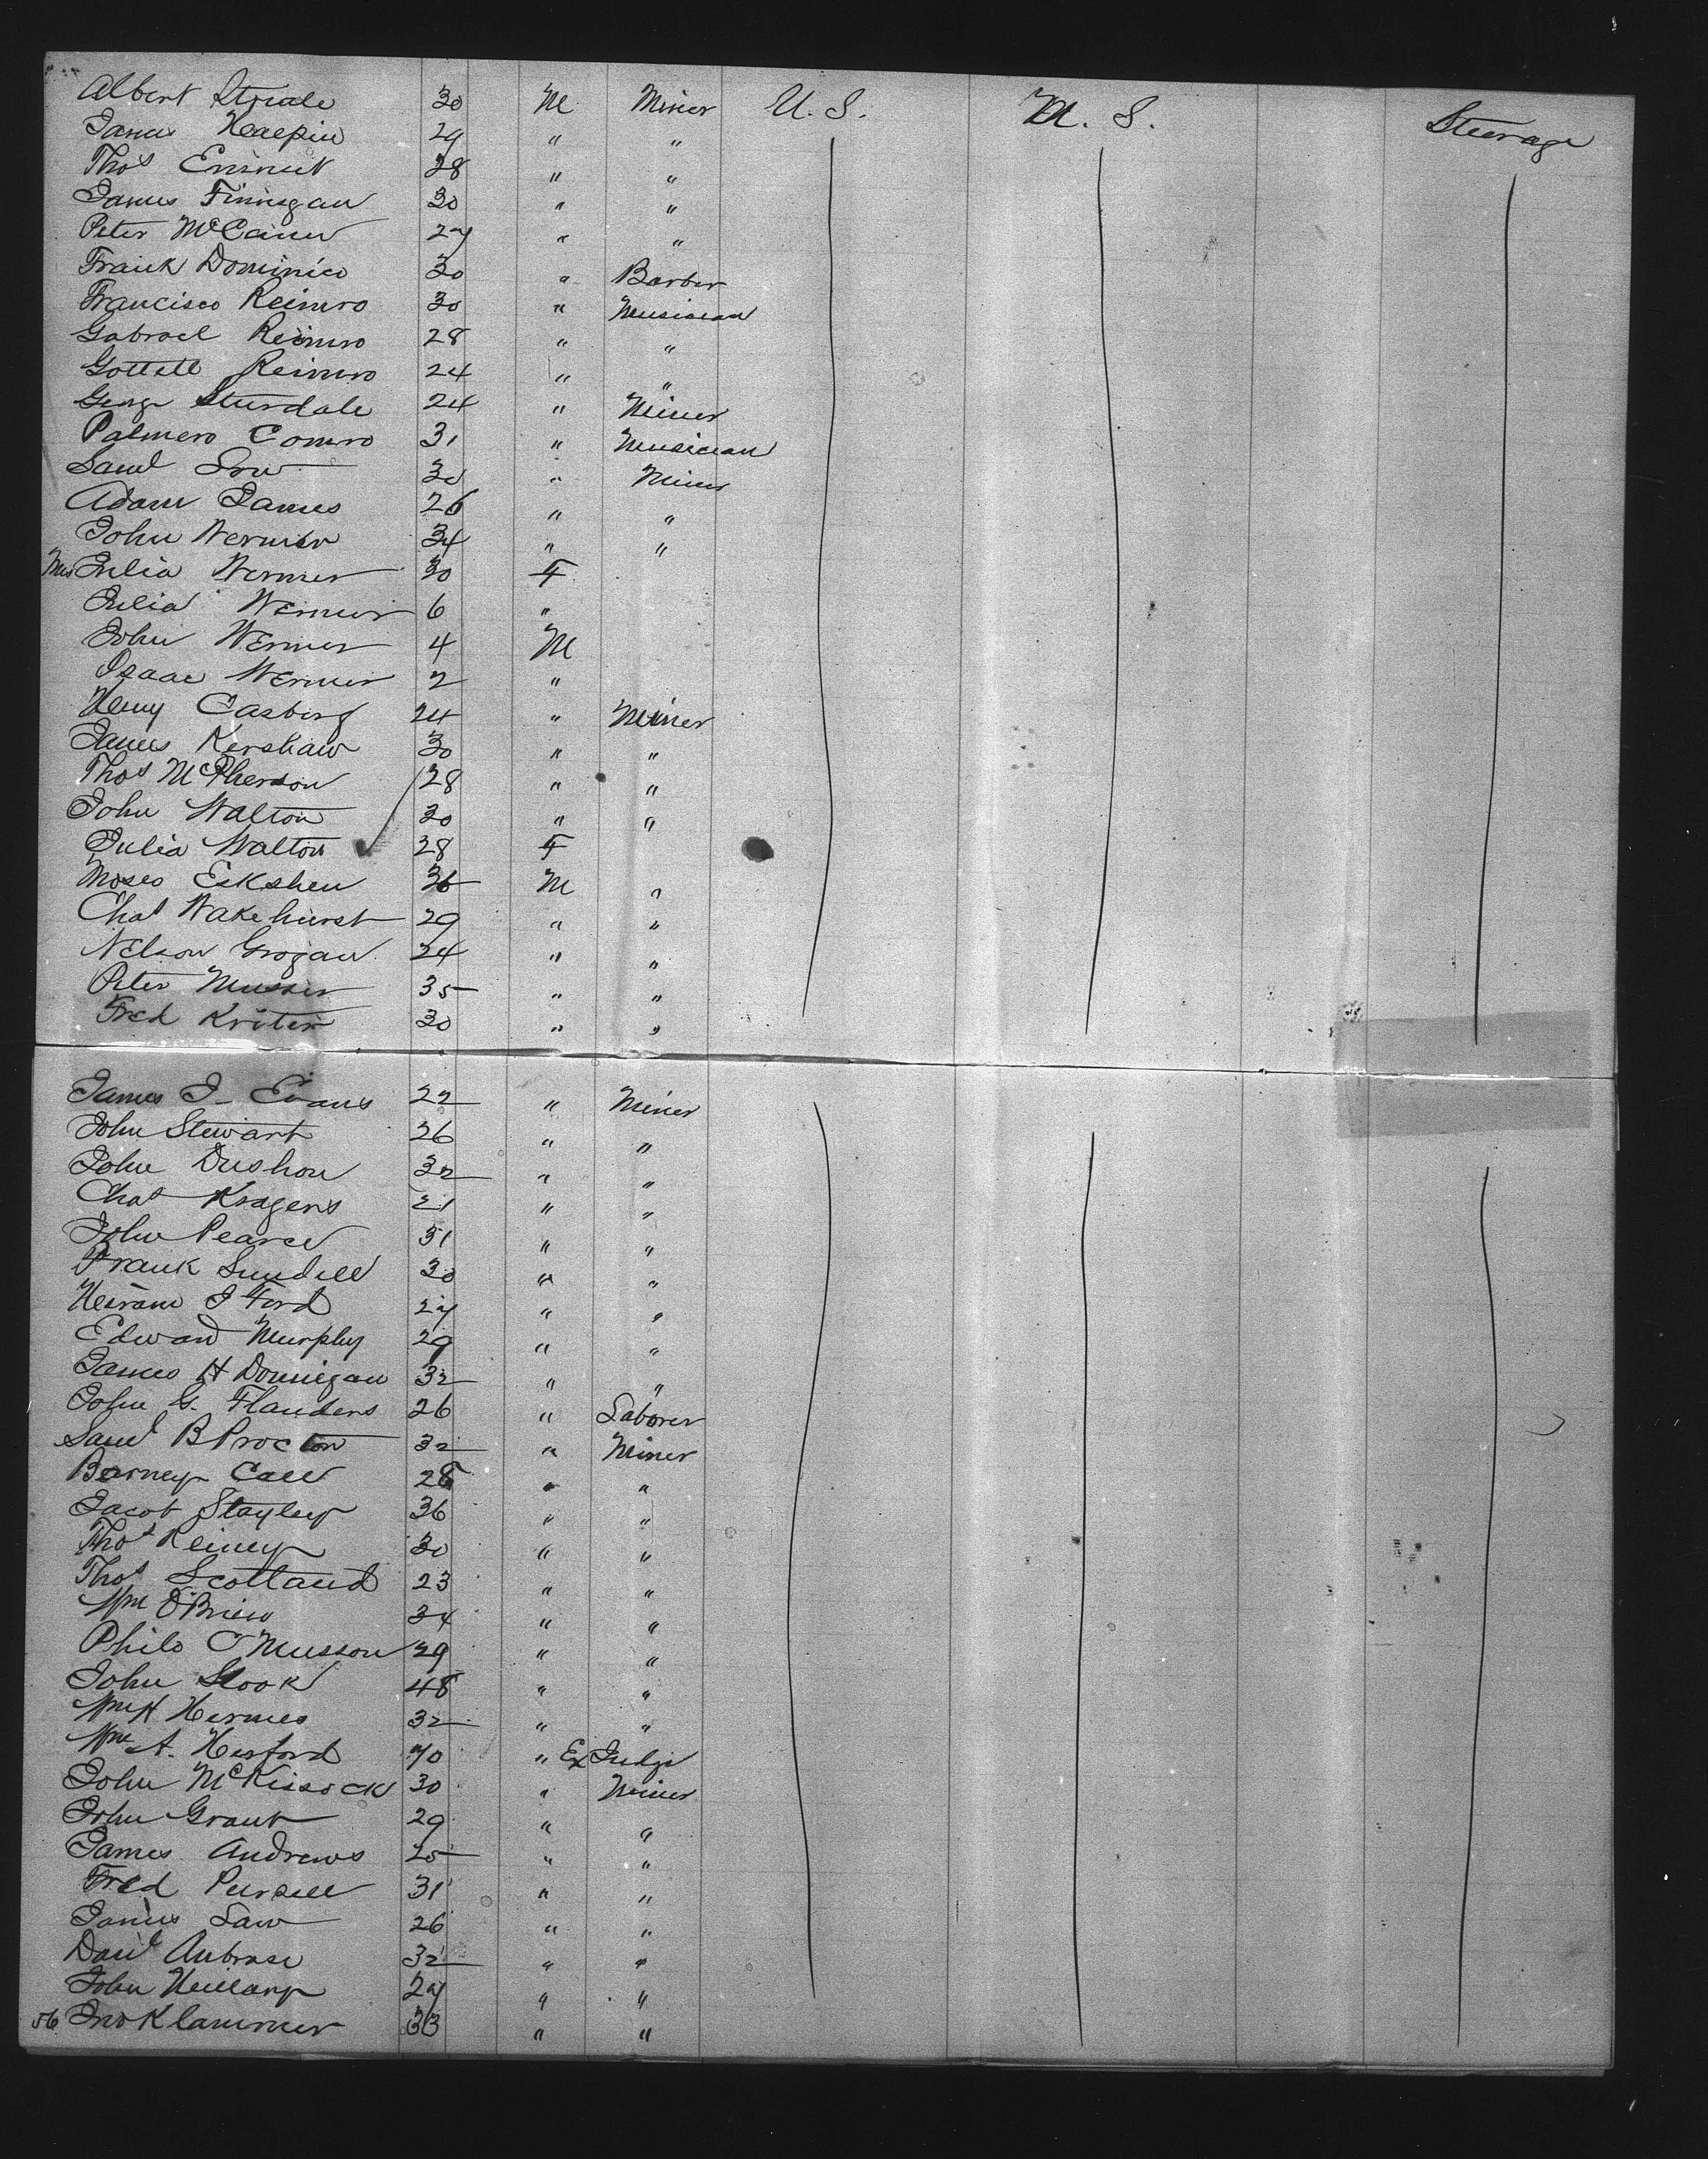 Albert 30 M Miner U.S. U.S. Steerage
James 29 " "
Thos Emmit 28 " "
James Finnigan 30 " "
Peter 27 " "
Frank Dominico 30 " Barber
Francisco Reimro 30 " Musician
Gabrael Reimro 28 " "
Reimro 24 " "
George Stursdale 24 " Miner
Palmero Comro 31 " Musician
Saml 30 " Miner
Adam James 26 " "
John Wermer 34 " "
Mrs Julia Wermer 30 F
Julia Wermer 6 "
John Wermer 4 M
Isaac Wermer 2 "
Henry Casberg 24 " Miner
James Kershaw 30 " "
Thos McPherson 28 " "
John Walton 30 " "
Julia Walton 28 F
Moses Eckshen 36 M "
Chas Wakehurst 29 " "
Nelson Grogan 24 " "
Peter Musser 35 " "
Fred Kriter 30 " "
James J Evans 22 " Miner
John Stewart 26 " "
John Dushon 32 " "
Chas Kragens 21 " "
John Pearce 31 " "
Frank Lundell 30 " "
Heiram J Ford 27 " "
Edward Murphy 29 " "
James H Donnigan 32 " "
John G. Flanders 26 " Laborer
Saml B Procton 32 " Miner
Barney Call 28 " "
Jacob Stayley 36 " "
Thos Reiney 30 " "
Thos Scotland 23 " "
Wm O'Brien 34 " "
Philo C Musson 29 " "
John Slook 48 " "
Wm H Hermes 32 " "
Wm A. Hesford 70 " Ex Judge
John McKissock 30 " Miner
John Grant 29 " "
James Andrews 25 " "
Fred Pursell 31 " "
James Law 26 " "
Danl Aubrose 32 " "
John 27 " "
56 Jno Klammer 33 " "